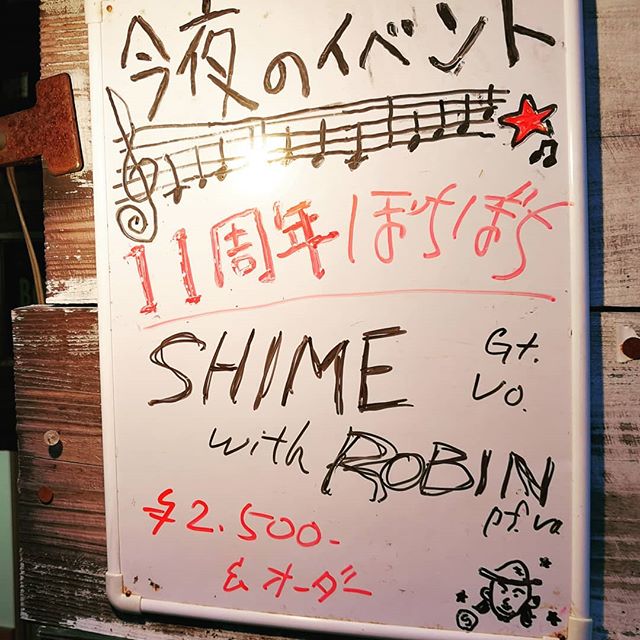 今夜のイベント
11周年ぼちぼち
SHIME Gt. Vo.
with ROBIN pf. vo
¥2.500-
& オーダー